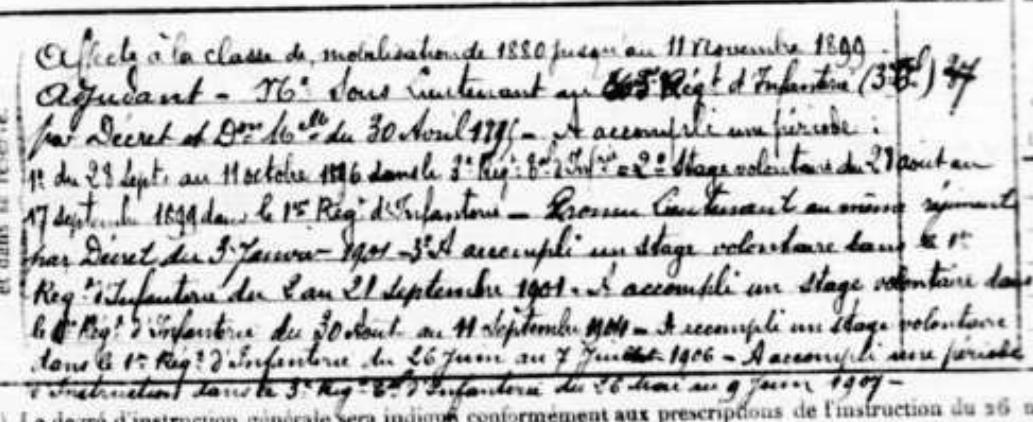 Affecté à la classe de mobilisation de 1880 jusqu'au 11 novembre 1899
Adjudant - Né Sous Lieutenant au Régt d'Infanterie (3
par Décret et Don Mlle du 30 Avril 1895 - A accompli une période :
1º du 28 Sept. au 11 octobre 1896 dans le 3e Régt d'Infie = 2º Stage volontaire du 28 aout au
17 septembre 1899 dans le 1er Régt d'Infanterie - Promu Lieutenant au même régiment
par Décret du 3 Janvier 1901 - 3º A accompli un stage volontaire dans le 1er
Régt d'Infanterie du 2 au 21 Septembre 1901. A accompli un stage volontaire dans
le 1er Régt d'Infanterie du 30 Aout au 11 Septembre 1904 - A accompli un stage volontaire
dans le 1er Régt d'Infanterie du 26 Juin au 7 Juillet 1906 - A accompli une période
d'Instruction dans le 3e Régt d'Infanterie du 26 mai au 9 Juin 1907 -
et dans la réserve.
Le degré d'instruction générale sera indiqué conformément aux prescriptions de l'instruction du 26